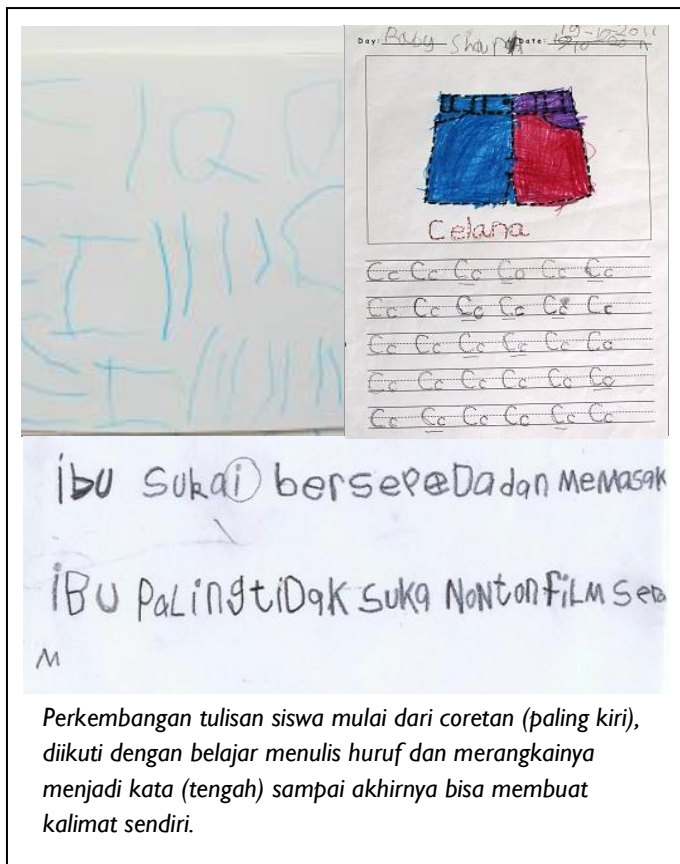 Day: Baby Date:
Celana
Cc Cc Cc Cc Cc Cc
Cc Cc Cc Cc Cc Cc
Cc Cc Cc Cc Cc Cc
Cc Cc Cc Cc Cc Cc
Cc Cc Cc Cc Cc Cc
ibu sukai bersepeDa dan MeMasak
iBU PaLing tiDak suka NoNton fiLM
M
Perkembangan tulisan siswa mulai dari coretan (paling kiri),
diikuti dengan belajar menulis huruf dan merangkainya
menjadi kata (tengah) sampai akhirnya bisa membuat
kalimat sendiri.